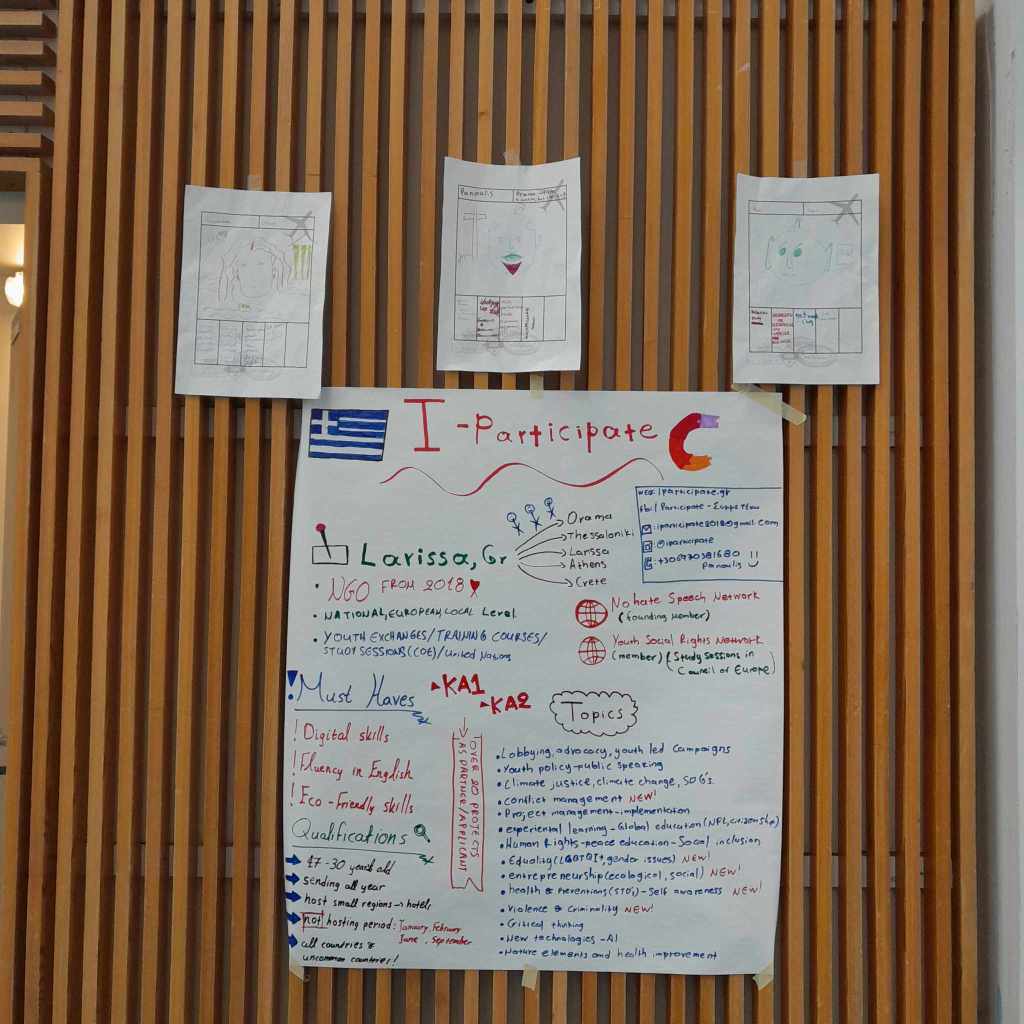 Panoulis
I - Participate
WEB: iparticipate.gr
fb: I Participate - Συμμετέχω
: iparticipate2018@gmail.com
: @iparticipate
: +306970381680 !!
Panoulis
Larissa, Gr
Drama
Thessaloniki
Larissa
Athens
Crete
• NGO FROM 2018
• NATIONAL, EUROPEAN, LOCAL Level
• YOUTH EXCHANGES / TRAINING COURSES /
STUDY SESSIONS (COE) / United Nations
No hate Speech Network
(founding Member)
Youth Social Rights Network
(member) (Study Sessions in
Council of Europe)
! Must Haves
! Digital skills
! Fluency in English
! Eco - Friendly skills
Qualifications
17 - 30 years old
sending all year
host small regions → hotels
not hosting period: January, February
June, September
all countries &
uncommon countries!
KA1
KA2
OVER 20 PROJECTS
AS PARTNER/APPLICANT
Topics
• Lobbying, advocacy, youth led Campaigns
• Youth policy - public speaking
• Climate justice, climate change, SDG's
• conflict management NEW!
• Project management - implementation
• experiential learning - Global education (NFL, citizenship)
• Human Rights - peace education - Social inclusion
• Equality (LGBTQI+, gender issues) NEW!
• entrepreneurship (ecological, social) NEW!
• health & preventions (STD's) - Self awareness NEW!
• Violence & Criminality NEW!
• Critical thinking
• New technologies - AI
• Nature elements and health improvement